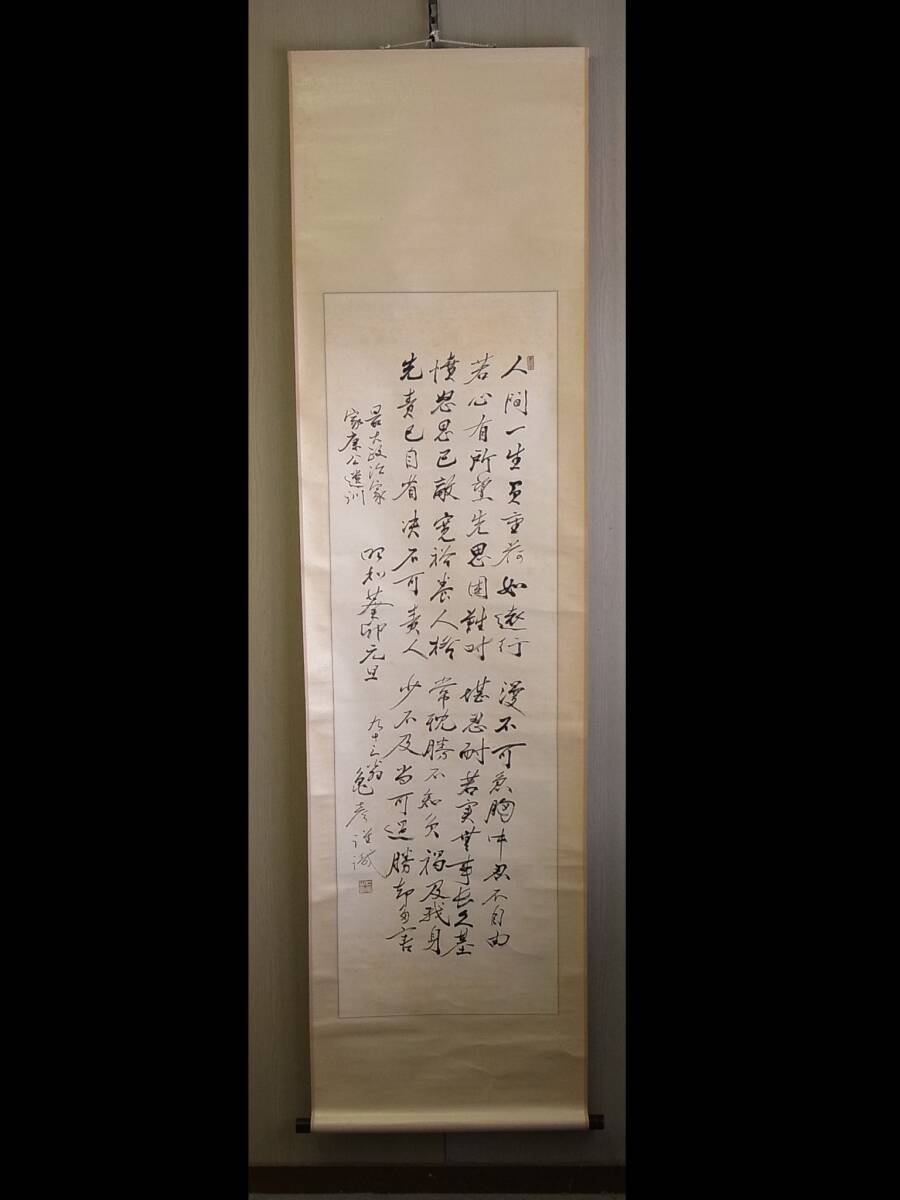 人間一生負重荷如遠行漫不可急胸中思不自由
若心有所望先思困難時堪忍耐若実無事長久基
憤怒思己敵寛裕養人格常耽勝不知負禍及我身
先責己自省決不可責人少不及尚可過勝却多害
最大政治家
家康公遺訓
昭和癸卯元旦
九十三翁亀彦謹識